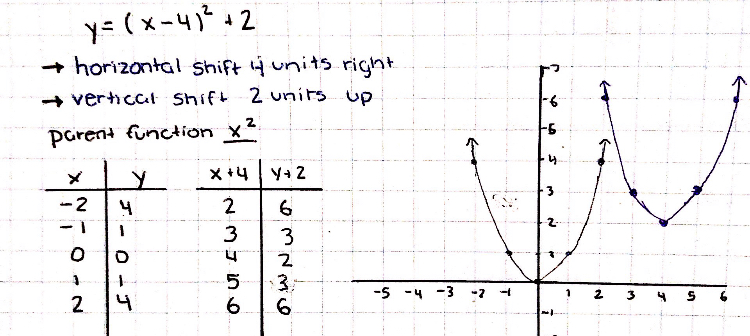 y = (x-4)² + 2
→ horizontal shift 4 units right
→ vertical shift 2 units up
parent function x²
x y x+4 y+2
-2 4 2 6
-1 1 3 3
0 0 4 2
1 1 5 3
2 4 6 6
7
6
5
4
3
2
1
-5 -4 -3 -2 -1 1 2 3 4 5 6
-1